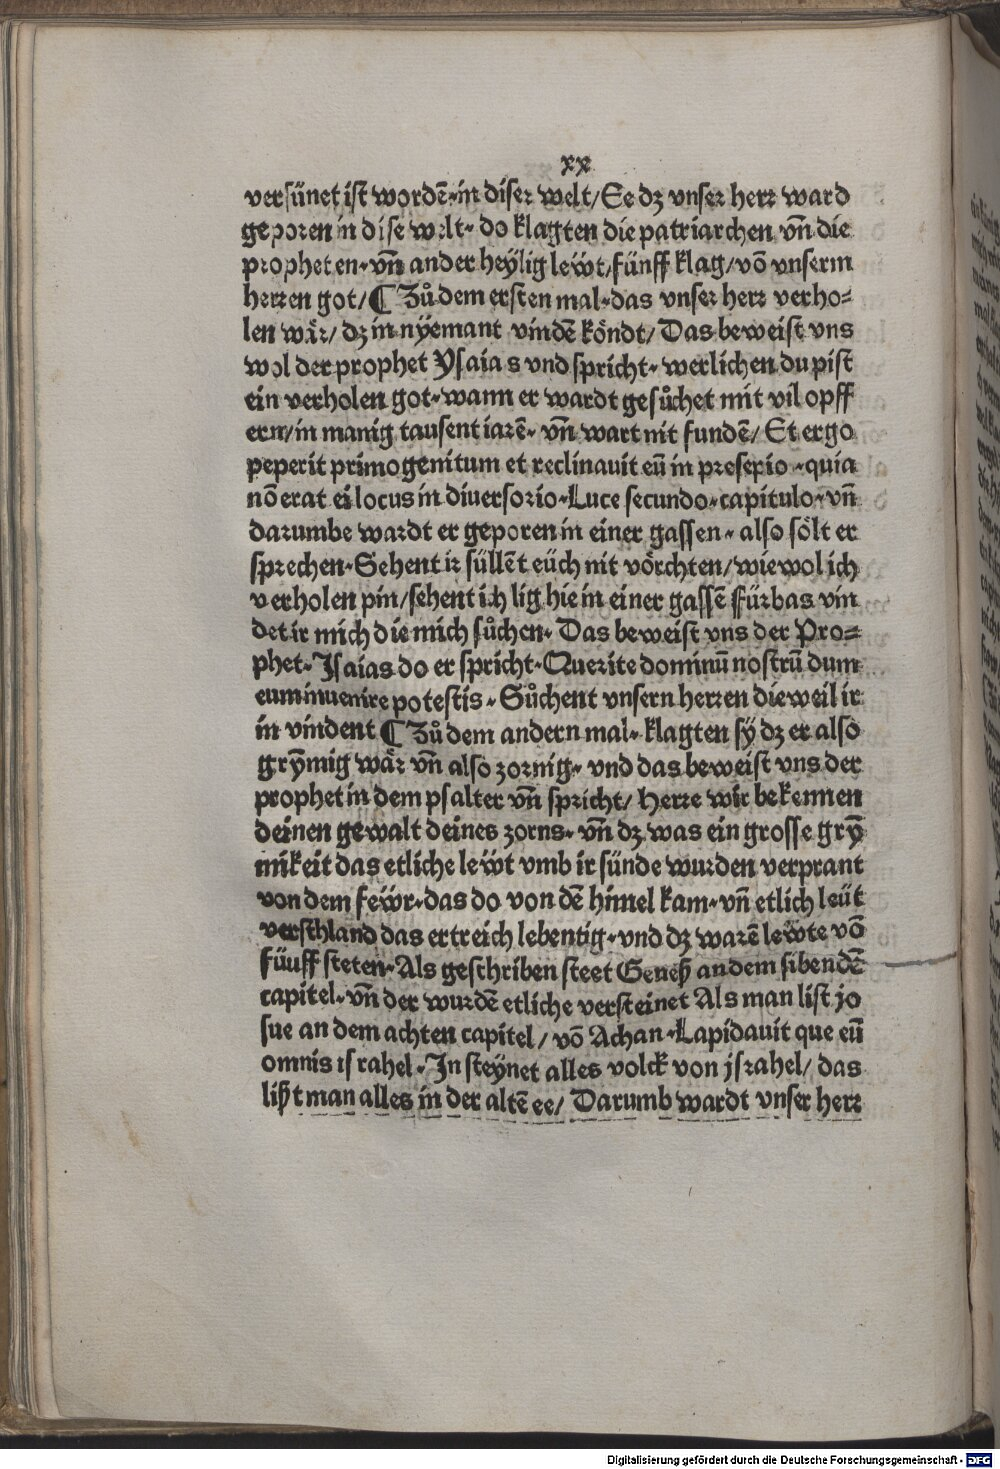 xx
versünet ist wordē·in diser welt/Ee dz vnser herr ward
geporen in dise welt· do klagten die patriarchen vn̄ die
propheten·vn̄ ander heÿlig leẅt/fünff klag/vō vnserm
herren got/¶ Zůdem ersten mal·das vnser herr verho⸗
len wär/ dz in nÿemant vindē köndt/ Das beweist vns
wol der prophet Ysaias vnd spricht· werlichen du pist
ein verholen got·wann er wardt gesůchet mit vil opff
ern/in manig tausent iarē· vn̄ wart nit fundē/ Et ergo
peperit primogenitum et reclinauit eū in presepio ·quia
nō erat ei locus in diuersorio·Luce secundo·capitulo·vn̄
darumbe wardt er geporen in einer gassen· also sölt er
sprechen·Sehent ir süllēt eüch nit vörchten/wiewol ich
verholen pin/sehent ich lig hie in einer gassē fürbas vin
det ir mich die mich sůchen· Das beweist vns der Pro⸗
phet·Isaias do er spricht·Querite dominū nostrū dum
eum inuenire potestis·Sůchent vnsern herren dieweil ir
in vindent ¶ Zůdem andern mal·klagten sÿ dz er also
grȳmig wär vn̄ also zornig· vnd das beweist vns der
prophet in dem psalter vn̄ spricht/ Herre wir bekennen
deinen gewalt deines zorns·vn̄ dz was ein grosse grȳ
mikeit das etliche leẅt vmb ir sünde wurden verprant
von dem feẅr·das do von dē himel kam·vn̄ etlich leüt
verschland das ertreich lebentig·vnd dz warē leẅte vō
füuff steten·Als geschriben steet Geneß an dem sibendē
capitel·vn̄ der wurdē etliche versteinet Als man list jo
sue an dem achten capitel/ vō Achan·Lapidauit que eū
omnis israhel·In steÿnet alles volck von jsrahel/ das
lißt man alles in der altē ee/ Darumb wardt vnser herr
Digitalisierung gefördert durch die Deutsche Forschungsgemeinschaft - DFG